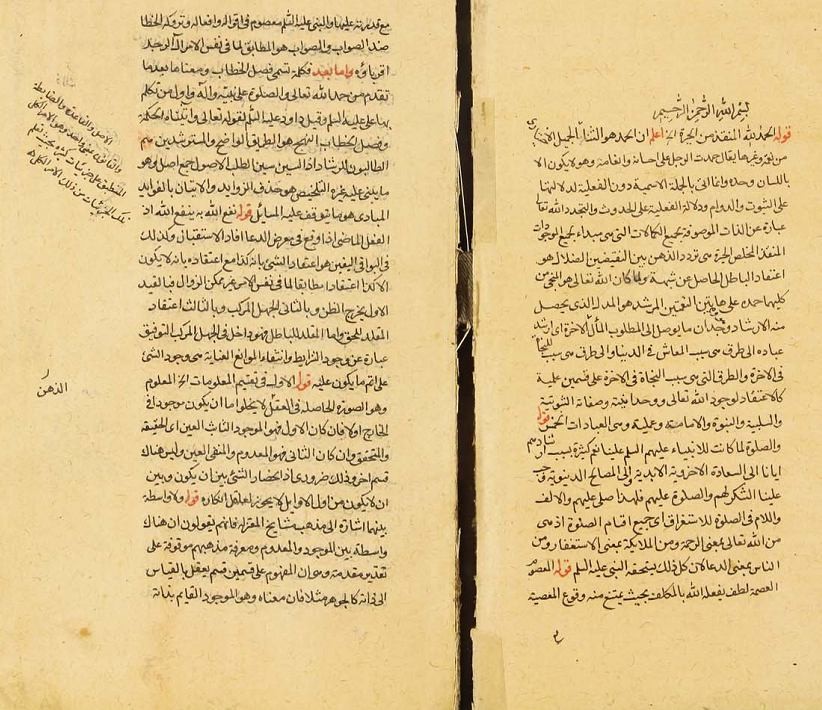 بسم الله الرحمن الرحيم
قوله الحمد لله المنقذ من الحيرة الخ اعلم ان الحمد هو الثناء الجميل الاختياري
من نوره وغرها يقال حمدت الرجل على احسانه وانعامه وهو لا يكون الا
باللسان وحده وانما اتى بالجملة الاسمية دون الفعلية لدلالتها
على الثبوت والدوام ودلالة الفعلية على الحدوث والتجدد الله تعالى
عبارة عن الذات الموصوفة بجميع الكمالات التي هي مبداء لجميع الموجودات
المنقذ المخلص الحيرة هي تردد الذهن بين النقيضين الضلال هو
اعتقاد الباطل الحاصل عن شبهة ولما كان الله تعالى هو المنجي من
كليهما حمده على هاتين النعمتين المرشد هو المدل الذي يحصل
منه الارشاد وجدان ما يوصل الى المطلوب المآل الاخرة اي ارشد
عباده الى طرق هي سبب المعاش في الدنيا والى طرق هي سبب النجاة
في الاخرة والطرق التي هي سبب النجاة في الاخرة على قسمين علمية
كالاعتقاد لوجود الله تعالى ووحدانيته وصفاته الثبوتية
والسلبية والنبوة والامامة وعملية وهي العبادات الخمس قوله
والصلوة لما كانت للانبياء عليهم السلم علينا نعم كثيرة بسبب ارشادهم
ايانا الى السعادة الاخروية الابدية والى المصالح الدينوية وجب
علينا الشكر لهم والصلوة عليهم فلهذا صلى عليهم والالف
واللام في الصلوة للاستغراق اي جميع اقسام الصلوة اذ هي
من الله تعالى بمعنى الرحمة ومن الملائكة بمعنى الاستغفار ومن
الناس بمعنى الدعا لان كل ذلك يستحقه النبي عليه السلم قوله المعصوم
العصمة لطف يفعله الله بالمكلف بحيث يمتنع منه وقوع المعصية
مع قدرته عليها والنبي عليه السلم معصوم في اقواله وافعاله وتروكه الخطأ
ضد الصواب والصواب هو المطابق لما في نفس الامر آل الرجل
اقرباؤه واما بعد فكلمة تسمى فصل الخطاب ومعناها بعد ما
تقدم من حمد الله تعالى والصلوة على نبيه وآله واول من تكلم
بها علي عليه السلم وقيل داود عليه السلم لقوله تعالى واتيناه الحكمة
وفصل الخطاب النهج هو الطريق الواضح والمسترشدين هم
الطالبون للرشاد اذ السين سين الطلب الاصول جمع اصل وهو
ما يبنى عليه غيره التلخيص هو حذف الزوايد والاتيان بالفوايد
المبادي هو ما يتوقف عليه المسائل قوله نفع الله به ينفع الله اذ
الفعل الماضي اذا وقع في معرض الدعا افاد الاستقبال وكذلك
في البواقي اليقين هو اعتقاد الشيء بانه كذا مع اعتقاده بانه لا يكون
الا كذا اعتقادا مطابقا لما في نفس الامر غير ممكن الزوال فبالقيد
الاول يخرج الظن وبالثاني الجهل المركب وبالثالث اعتقاد
المقلد للحق واما المقلد للباطل فهو داخل في الجهل المركب التوفيق
عبارة عن وجود الشرايط وانتفاء الموانع الغناية هي وجود الشيء
على اتم ما يكون عليه قوله الاول في تقسيم المعلومات الخ المعلوم
وهو الصورة الحاصلة في العقل لا يخلو اما ان يكون موجودا في
الخارج اولا فان كان الاول فهو الموجود الثابت العين اي الحقيقة
والمتحقق وان كان الثاني فهو المعدوم والمنفي العين وليس هناك
قسم اخر وذلك ضروري اذ انحصار الشيء بين ان يكون وبين
ان لا يكون من اول الاوايل لا يجوز لعاقل انكاره قوله ولا واسطة
بينهما اشارة الى مذهب مشايخ المعتزلة فانهم يقولون ان هناك
واسطة بين الموجود والمعدوم ومعرفة مذهبهم موقوفة على
تقديم مقدمة وهي ان المفهوم على قسمين قسم يعقل بالقياس
الى ذاته كالجوهر مثلا فان معناه وهو الموجود القايم بذاته
الاصل والقاعدة والضابطة
والقانون بمعنى واحد وهو الامر الكلي
المنطبق على جزئيات كثيرة بحيث تعلم
تلك الجزئيات من ذلك الامر الكلي
الذهن